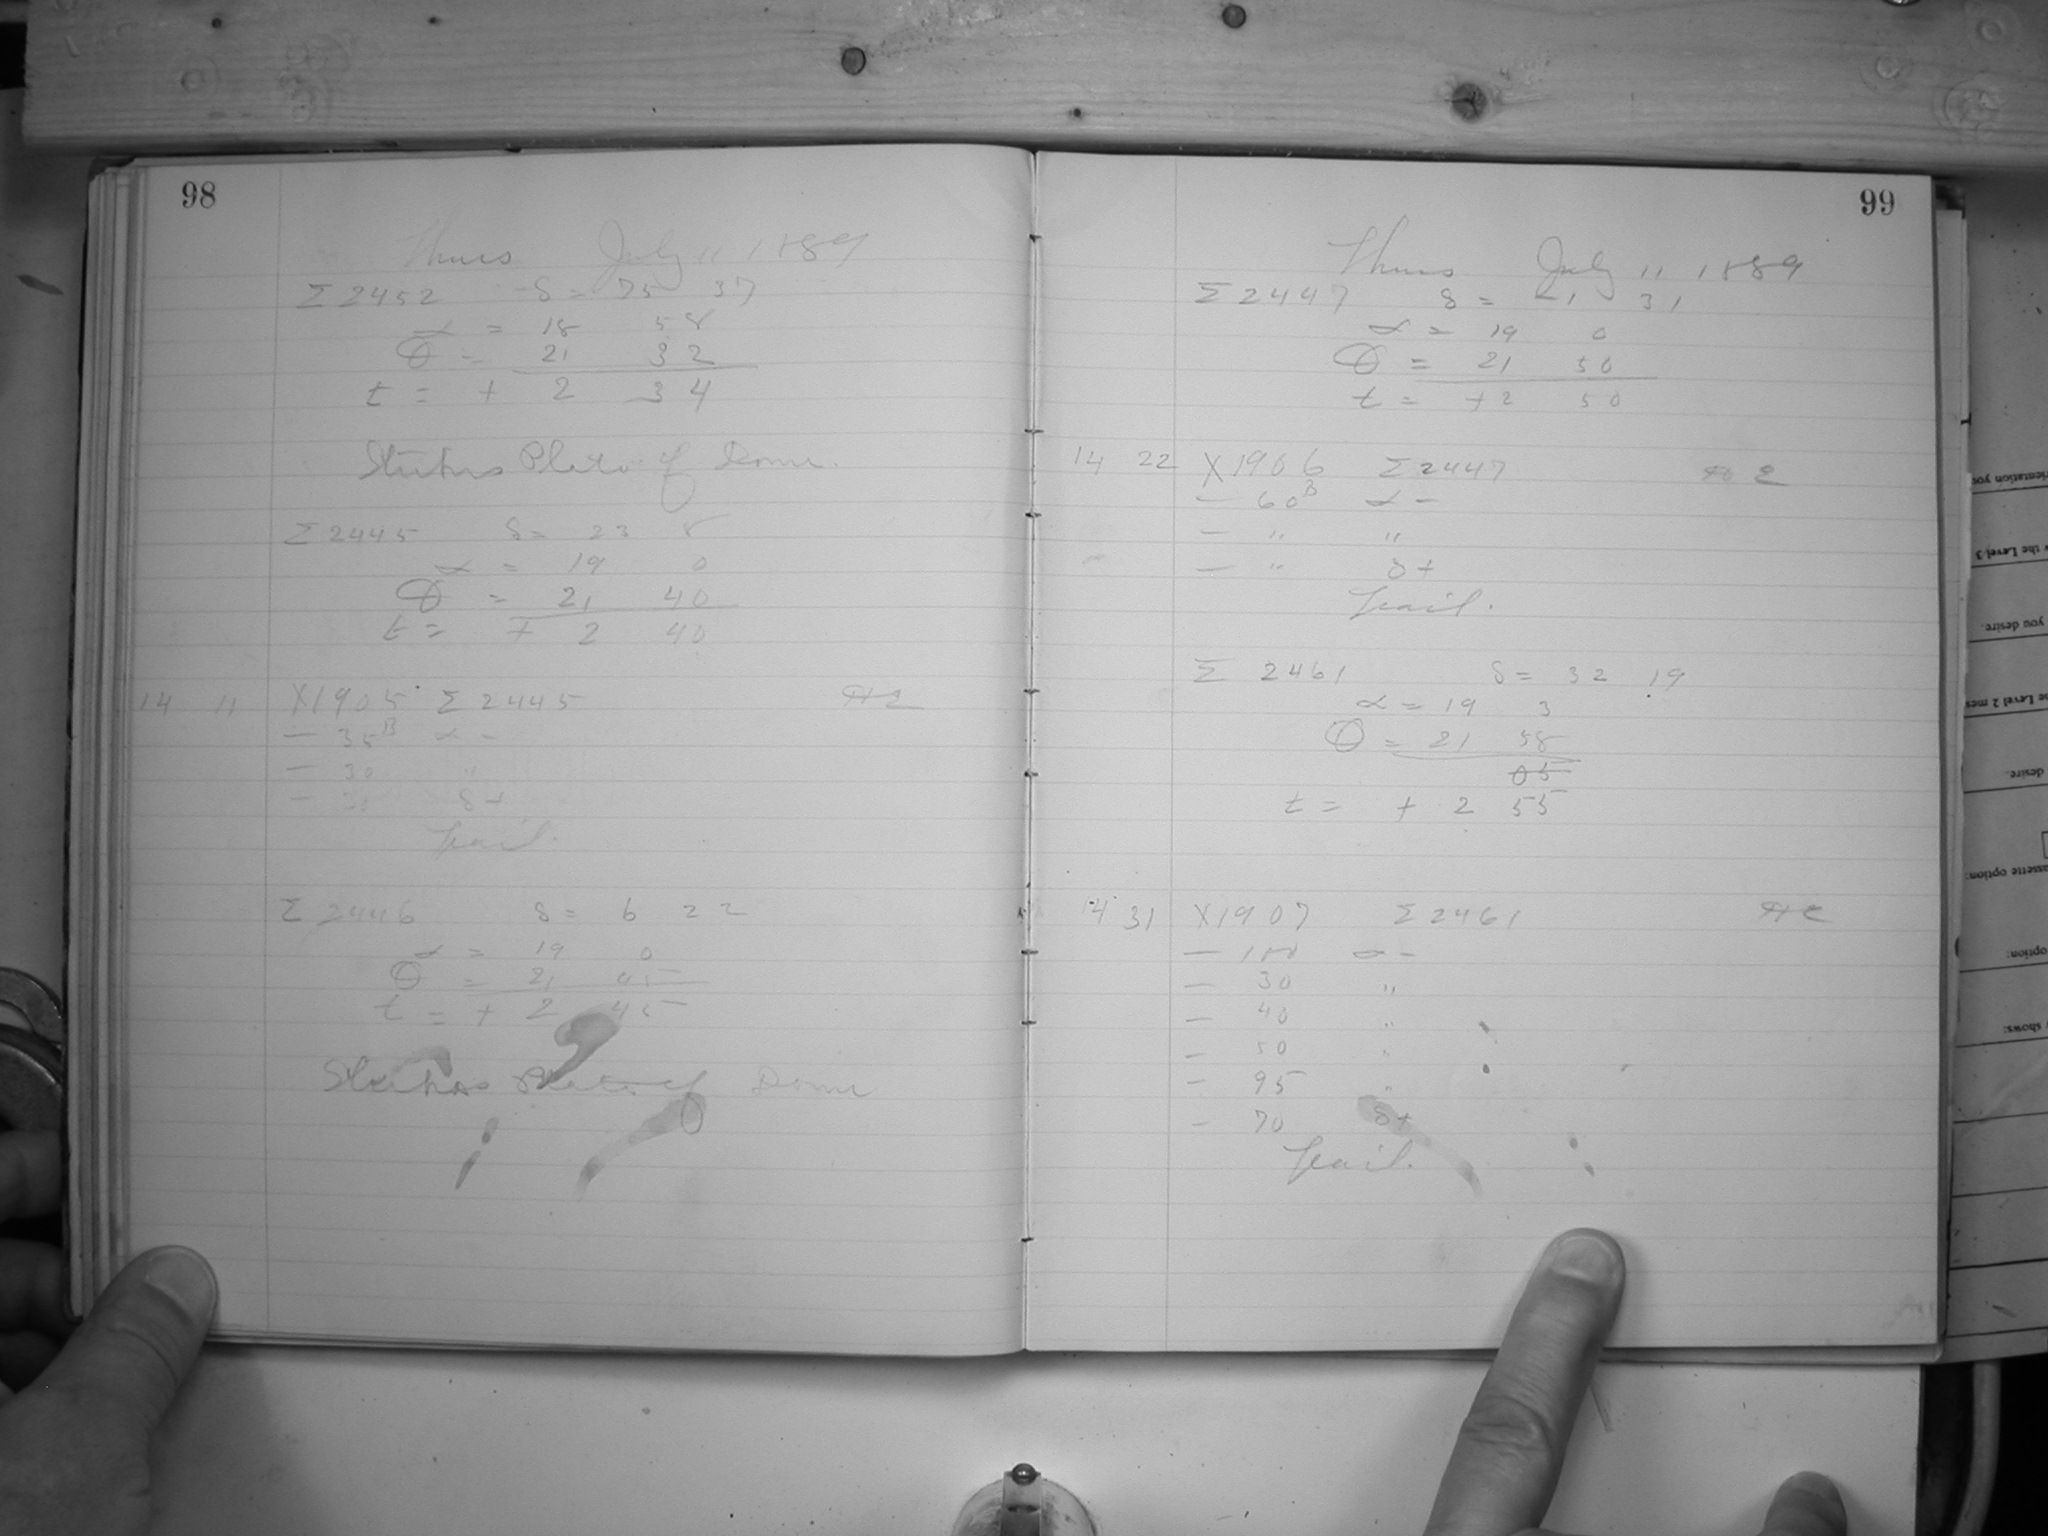 98
Thurs July 11 1889
Σ 2452 δ = 75 37
α = 18 58
θ = 21 32
t = + 2 34
Strikes Plate of Dome.
Σ 2445 δ = 23 8
α = 19 0
θ = 21 40
t = + 2 40
14 11 X1905 Σ 2445
— 35ᴮ α -
— 30 "
— 35 δ +
Trail.
Σ 2446 δ = 6 22
α = 19 0
θ = 21 45
t = + 2 45
Strikes Plate of Dome
99
Thurs July 11 1889
Σ 2447 δ = -1 31
α = 19 0
θ = 21 50
t = +2 50
14 22 X1906 Σ 2447
— 60ᴮ α -
— " "
— " δ +
Trail.
Σ 2461 δ = 32 19
α = 19 3
θ = 21 58
05
t = + 2 55
14 31 X1907 Σ 2461
— 100 α -
— 30 "
— 40 "
— 50 "
— 95 "
— 70 δ +
Trail.
orientation you
the Level 3
you desire.
e Level 2 mes
desire.
assette option:
option:
shows: